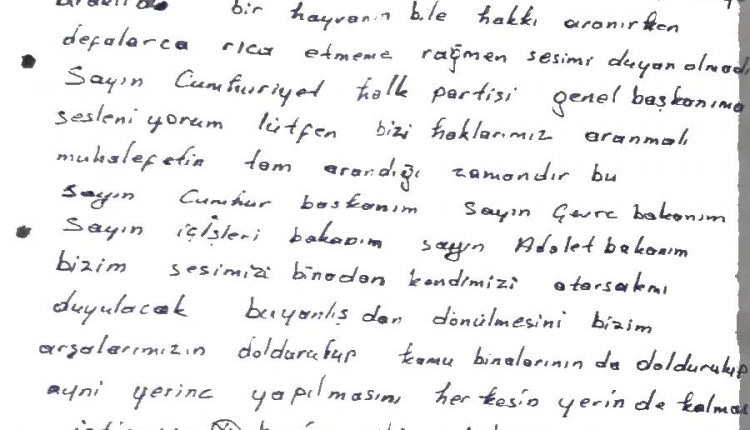 bir hayvanın bile hakkı aranırken
defalarca rica etmeme rağmen sesimi duyan olmadı
Sayın Cumhuriyet halk partisi genel başkanıma
sesleniyorum lütfen bizi haklarımız aranmalı
muhalefetin tam arandığı zamandır bu
Sayın Cumhur başkanım Sayın Çevre bakanım
Sayın içişleri bakanım sayın Adalet bakanım
bizim sesimizi binadan kendimizi atarsakmı
duyulacak buyanlış dan dönülmesini bizim
arsalarımızın doldurulup kamu binalarının da doldurulup
ayni yerine yapılmasını herkesin yerinde kalmas